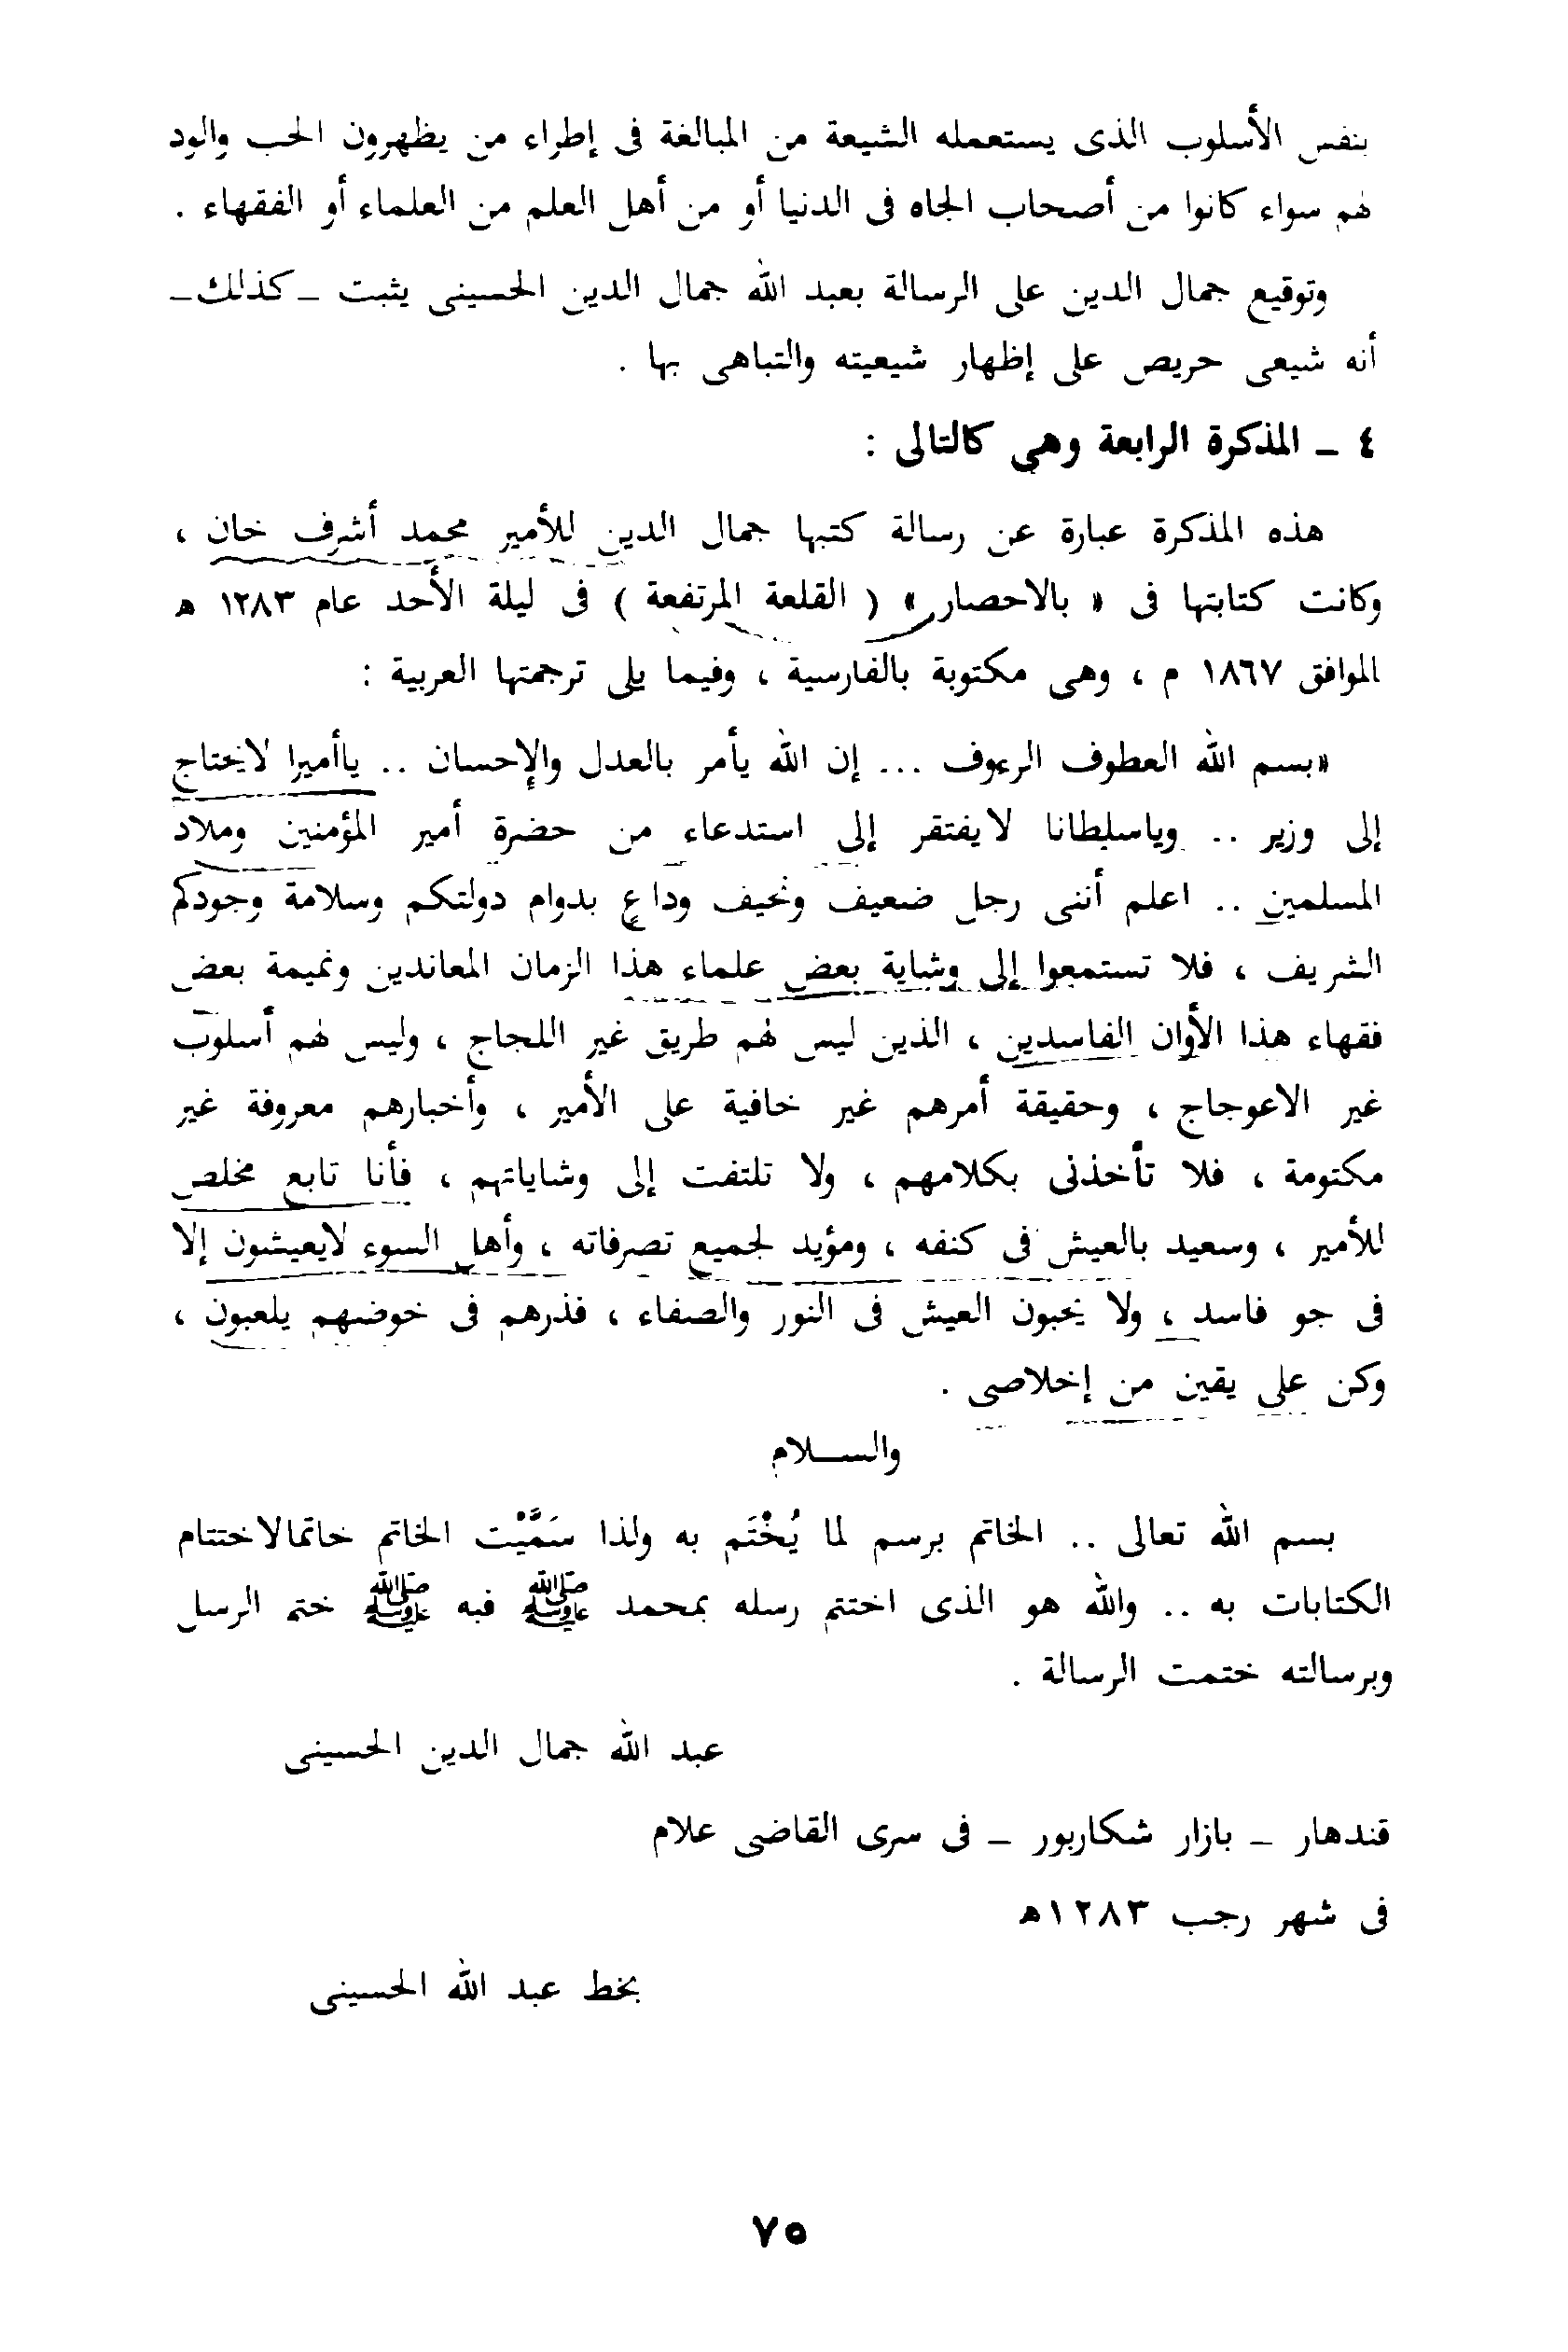 بنفس الأسلوب الذى يستعمله الشيعة من المبالغة فى إطراء من يظهرون الحب والود
لهم سواء كانوا من أصحاب الجاه فى الدنيا أو من أهل العلم من العلماء أو الفقهاء .
وتوقيع جمال الدين على الرسالة بعبد الله جمال الدين الحسينى يثبت – كذلك –
أنه شيعى حريص على إظهار شيعيته والتباهى بها .
٤ – المذكرة الرابعة وهى كالتالى :
هذه المذكرة عبارة عن رسالة كتبها جمال الدين للأمير محمد أشرف خان ،
وكانت كتابتها فى « بالاحصار » ( القلعة المرتفعة ) فى ليلة الأحد عام ١٢٨٣ هـ
الموافق ١٨٦٧ م ، وهى مكتوبة بالفارسية ، وفيما يلى ترجمتها العربية :
«بسم الله العطوف الرءوف ... إن الله يأمر بالعدل والإحسان .. ياأميرا لايحتاج
إلى وزير .. وياسلطانا لايفتقر إلى استدعاء من حضرة أمير المؤمنين وملاد
المسلمين .. اعلم أننى رجل ضعيف ونحيف وداعٍ بدوام دولتكم وسلامة وجودكم
الشريف ، فلا تستمعوا إلى وشاية بعض علماء هذا الزمان المعاندين ونميمة بعض
فقهاء هذا الأوان الفاسدين ، الذين ليس لهم طريق غير اللجاج ، وليس لهم أسلوب
غير الاعوجاج ، وحقيقة أمرهم غير خافية على الأمير ، وأخبارهم معروفة غير
مكتومة ، فلا تأخذنى بكلامهم ، ولا تلتفت إلى وشاياتهم ، فأنا تابع مخلص
للأمير ، وسعيد بالعيش فى كنفه ، ومؤيد لجميع تصرفاته ، وأهل السوء لايعيشون إلا
فى جو فاسد ، ولا يحبون العيش فى النور والصفاء ، فذرهم فى خوضهم يلعبون ،
وكن على يقين من إخلاصى .
والســلام
بسم الله تعالى .. الخاتم برسم لما يُخْتَم به ولذا سَمَّيْت الخاتم خاتمالاختتام
الكتابات به .. والله هو الذى اختتم رسله بمحمد ﷺ فبه ﷺ ختم الرسل
وبرسالته ختمت الرسالة .
عبد الله جمال الدين الحسينى
قندهار – بازار شكاربور – فى سرى القاضى علام
فى شهر رجب ١٢٨٣هـ
بخط عبد الله الحسينى
٧٥